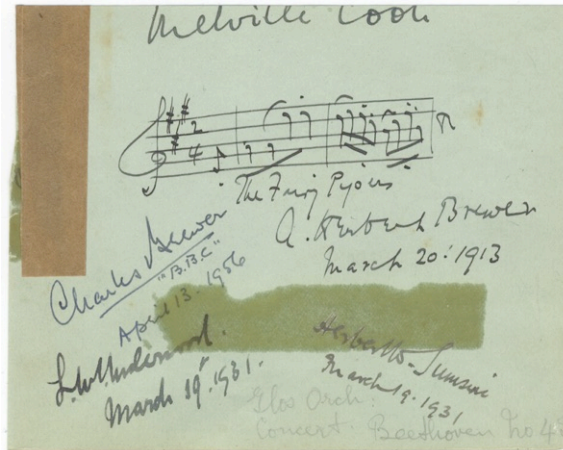 Melville Cook
2
4
The Fairy Pipers
A. Herbert Brewer
March 20: 1913
Charles Brewer
"B.B.C."
April 13. 1956
March 19. 1931.
Herbert W. Sumsion
March 19. 1931
Glos Orch:
Concert. Beethoven No 4